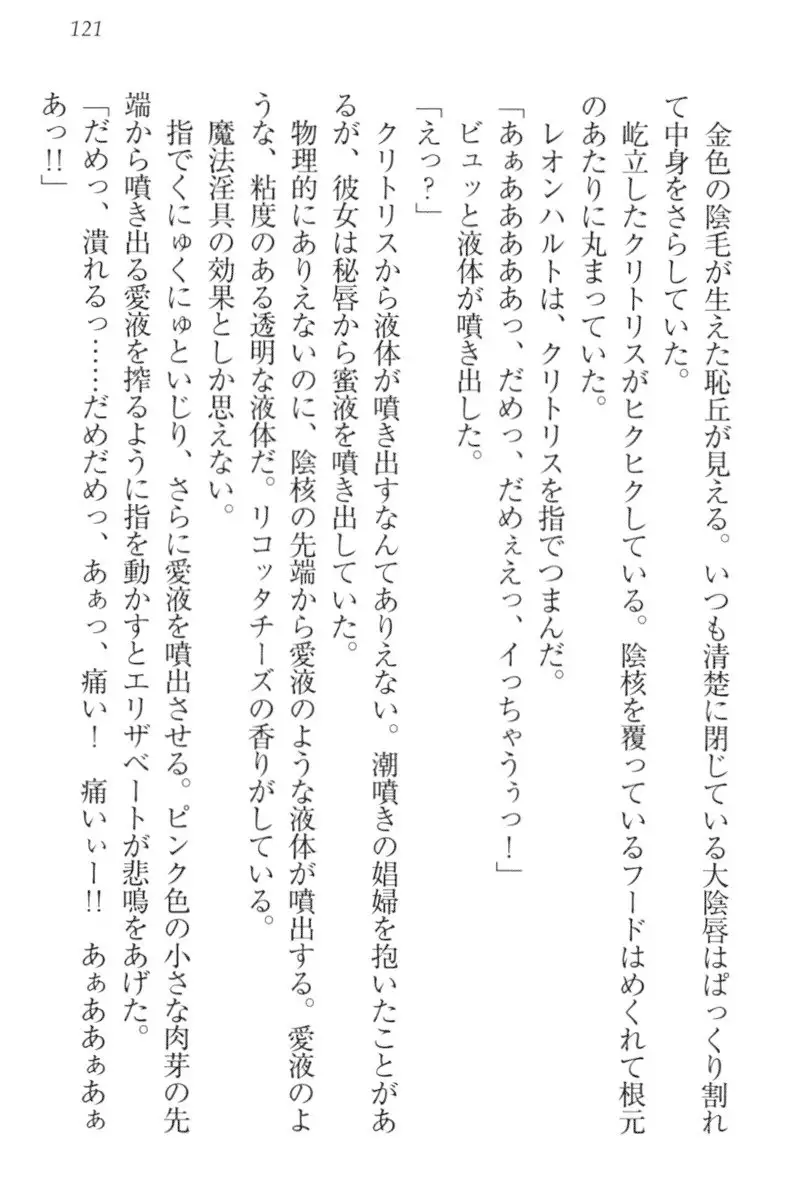 121
金色の陰毛が生えた恥丘が見える。いつも清楚に閉じている大陰唇はぱっくり割れ
て中身をさらしていた。
屹立したクリトリスがヒクヒクしている。陰核を覆っているフードはめくれて根元
のあたりに丸まっていた。
レオンハルトは、クリトリスを指でつまんだ。
「あぁああああぁっ、だめっ、だめぇえっ、イっちゃうぅっ！」
ビュッと液体が噴き出した。
「えっ？」
クリトリスから液体が噴き出すなんてありえない。潮噴きの娼婦を抱いたことがあ
るが、彼女は秘唇から蜜液を噴き出していた。
物理的にありえないのに、陰核の先端から愛液のような液体が噴出する。愛液のよ
うな、粘度のある透明な液体だ。リコッタチーズの香りがしている。
魔法淫具の効果としか思えない。
指でくにゅくにゅといじり、さらに愛液を噴出させる。ピンク色の小さな肉芽の先
端から噴き出る愛液を搾るように指を動かすとエリザベートが悲鳴をあげた。
「だめっ、潰れるっ……だめだめっ、あぁっ、痛い！　痛いぃー!!　あぁああぁあぁ
あっ!!」